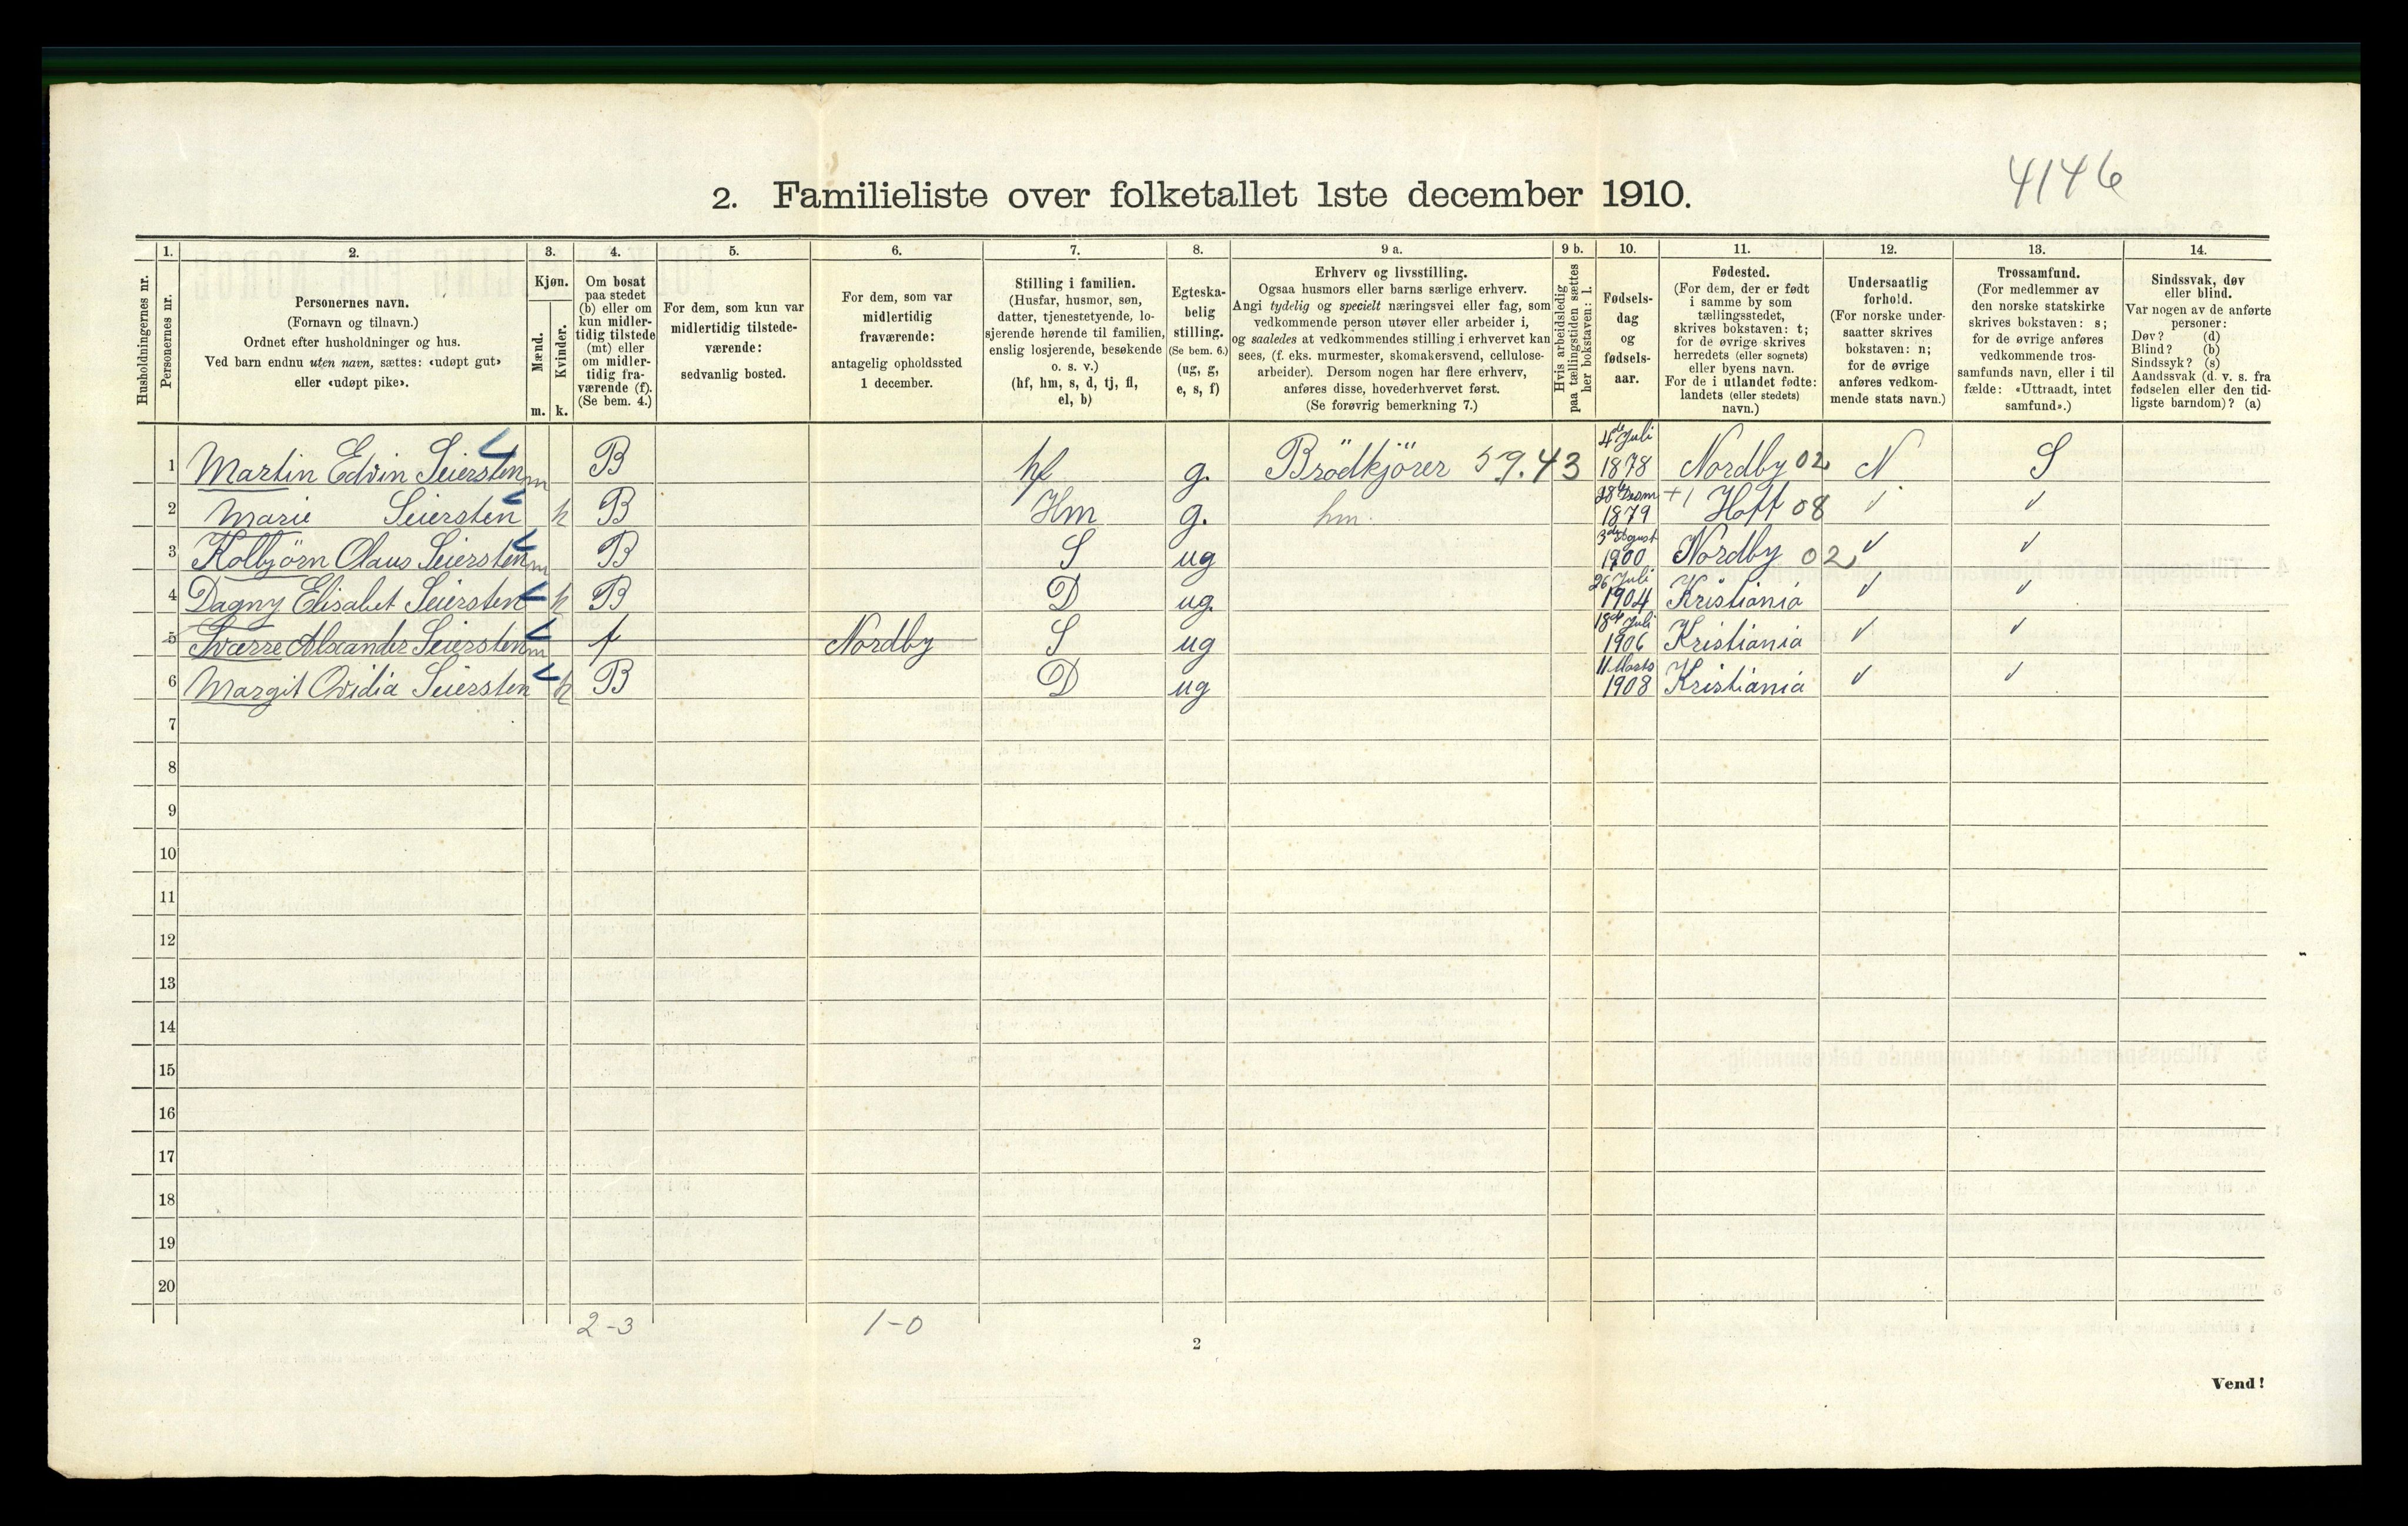 4146
2. Familieliste over folketallet 1ste december 1910.
Husholdningernes nr.
1. Personernes nr.
2. Personernes navn.
(Fornavn og tilnavn.)
Ordnet efter husholdninger og hus.
Ved barn endnu uten navn, sættes: «udøpt gut»
eller «udøpt pike».
3. Kjøn.
Mænd. m.
Kvinder. k.
4. Om bosat
paa stedet
(b) eller om
kun midler-
tidig tilstede
(mt) eller
om midler-
tidig fra-
værende (f).
(Se bem. 4.)
5. For dem, som kun var
midlertidig tilstede-
værende:
sedvanlig bosted.
6. For dem, som var
midlertidig
fraværende:
antagelig opholdssted
1 december.
7. Stilling i familien.
(Husfar, husmor, søn,
datter, tjenestetyende, lo-
sjerende hørende til familien,
enslig losjerende, besøkende
o. s. v.)
(hf, hm, s, d, tj, fl,
el, b)
8. Egteska-
belig
stilling.
(Se bem. 6.)
(ug, g,
e, s, f)
9 a. Erhverv og livsstilling.
Ogsaa husmors eller barns særlige erhverv.
Angi tydelig og specielt næringsvei eller fag, som
vedkommende person utøver eller arbeider i,
og saaledes at vedkommendes stilling i erhvervet kan
sees, (f. eks. murmester, skomakersvend, cellulose-
arbeider). Dersom nogen har flere erhverv,
anføres disse, hovederhvervet først.
(Se forøvrig bemerkning 7.)
9 b. Hvis arbeidsledig
paa tællingstiden sættes
her bokstaven: l.
10. Fødsels-
dag
og
fødsels-
aar.
11. Fødested.
(For dem, der er født
i samme by som
tællingsstedet,
skrives bokstaven: t;
for de øvrige skrives
herredets (eller sognets)
eller byens navn.
For de i utlandet fødte:
landets (eller stedets)
navn.)
12. Undersaatlig
forhold.
(For norske under-
saatter skrives
bokstaven: n;
for de øvrige
anføres vedkom-
mende stats navn.)
13. Trossamfund.
(For medlemmer av
den norske statskirke
skrives bokstaven: s;
for de øvrige anføres
vedkommende tros-
samfunds navn, eller i til
fælde: «Uttraadt, intet
samfund».)
14. Sindssvak, døv
eller blind.
Var nogen av de anførte
personer:
Døv? (d)
Blind? (b)
Sindssyk? (s)
Aandssvak (d. v. s. fra
fødselen eller den tid-
ligste barndom)? (a)
1 Martin Edvin Seiersten m B hf g. Brödkjörer 59.43 4de Juli 1878 Nordby 02 N S
2 Marie Seiersten k B Hm g. hm. 1879 Hoff 08 ✓ ✓
3 Kolbjörn Olaus Seiersten m B S ug 3 August 1900 Nordby 02 ✓ ✓
4 Dagny Elisabet Seiersten k B D ug. 26 Juli 1904 Kristiania ✓ ✓
5 Sværre Alexander Seiersten m f Nordby S ug 18de Juli 1906 Kristiania ✓ ✓
6 Margit Ovidia Seiersten k B D ug 11 Marts 1908 Kristiania ✓ ✓
7
8
9
10
11
12
13
14
15
16
17
18
19
20
2-3 1-0
2
Vend!